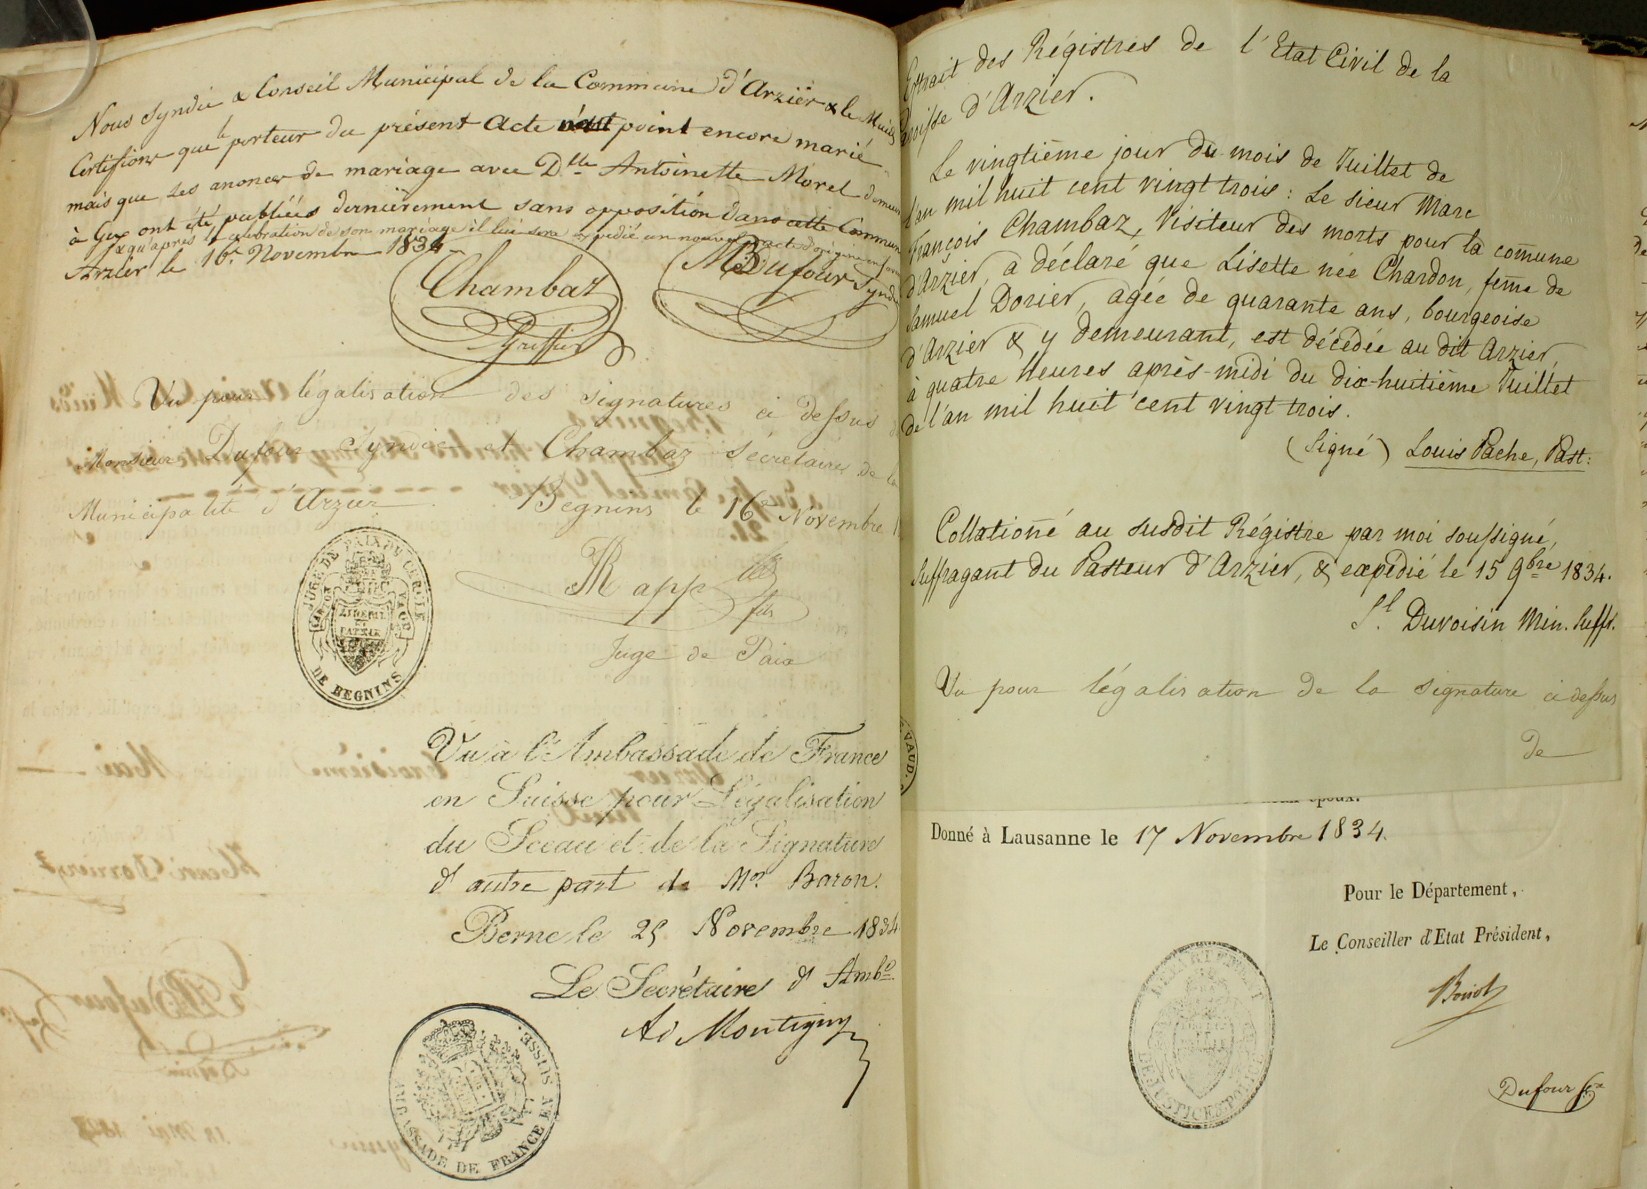 Nous Syndic & Conseil Municipal de la Commune d'Arzier & le Muids
Certifions que le porteur du présent Acte n'est point encore marié
mais que les anonces de mariage avec Dlle Antoinette Morel demeur
à Gex ont été publiées dernièrement sans opposition dans cette Commune
& qu'après la célébration de son mariage il lui sera expédié un nouvel acte d'origine
Arzier le 16e Novembre 1834
Chambaz
Greffier
MDufour Syndic
Vu pour légalisation des signatures ci dessus
Monsieur Dufour Syndic et Chambaz Sécrétaire de la
Municipalité d'Arzier. Begnins le 16e Novembre
JUGE DE PAIX DU CERCLE
CANTON VAUD
LIBERTÉ ET PATRIE
DE BEGNINS
Rapp
fils
Juge de Paix
Vu à l'Ambassade de France
en Suisse pour Légalisation
du Sceau et de la Signature
d'autre part de Mor. Baron.
Berne le 25 Novembre 1834
Le Secrétaire d'Ambe
Ad Montigny
AMBASSADE DE FRANCE EN SUISSE.
Extrait des Régistres de l'Etat Civil de la
Paroisse d'Arzier.
Le vingtième jour du mois de Juillet de
l'an mil huit cent vingt trois: Le sieur Marc
François Chambaz, Visiteur des morts pour la comune
d'Arzier, a déclaré que Lisette née Chardon, feme de
Samuel Dorier, agée de quarante ans, bourgeoise
d'Arzier & y demeurant, est décédée au dit Arzier,
à quatre heures après-midi du dix-huitième Juillet
de l'an mil huit cent vingt trois.
(Signé) Louis Pache, Past:
Collationé au susdit Régistre par moi soussigné,
Suffragant du Pasteur d'Arzier, & expédié le 15 9bre 1834.
Sl. Duvoisin Min. Suffr.
Vu pour légalisation de la signature ci dessus
de
VAUD.
époux.
Donné à Lausanne le 17 Novembre 1834.
Pour le Département,
Le Conseiller d'Etat Président,
DÉPARTEMENT
DE JUSTICE & POLICE
Dufour